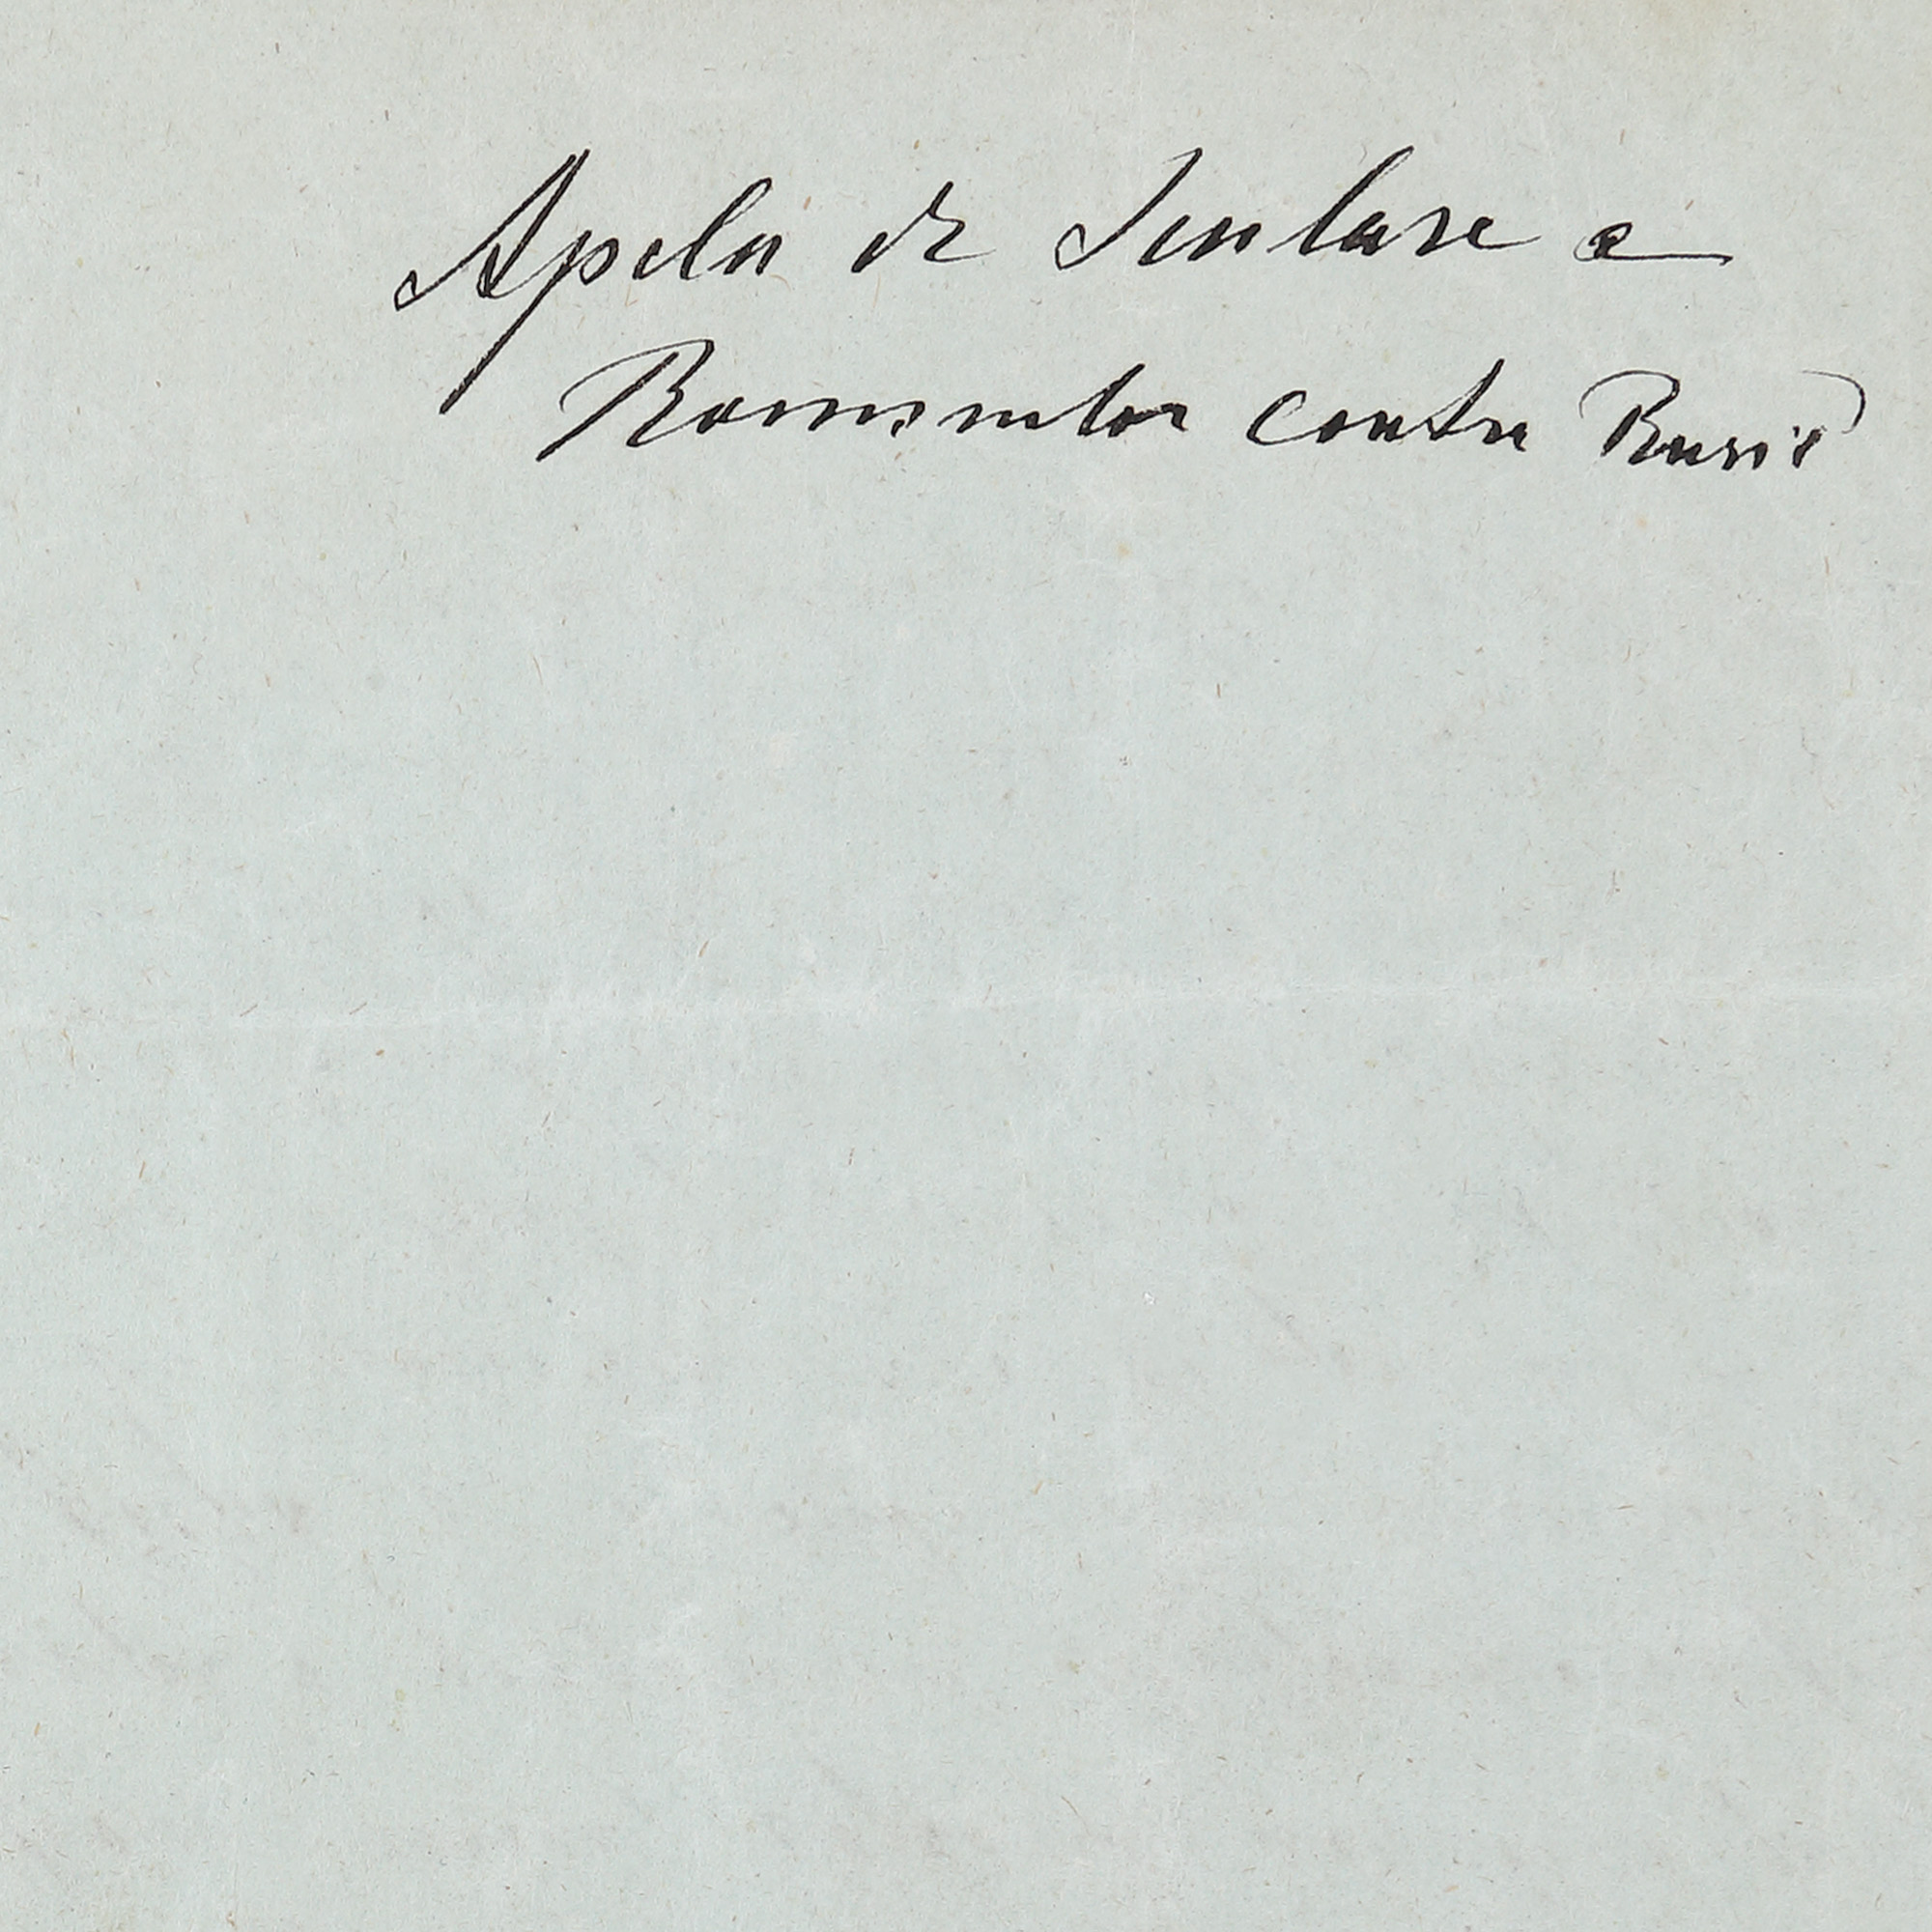 Apelu de Sculare a
Romanilor contra Rusiei